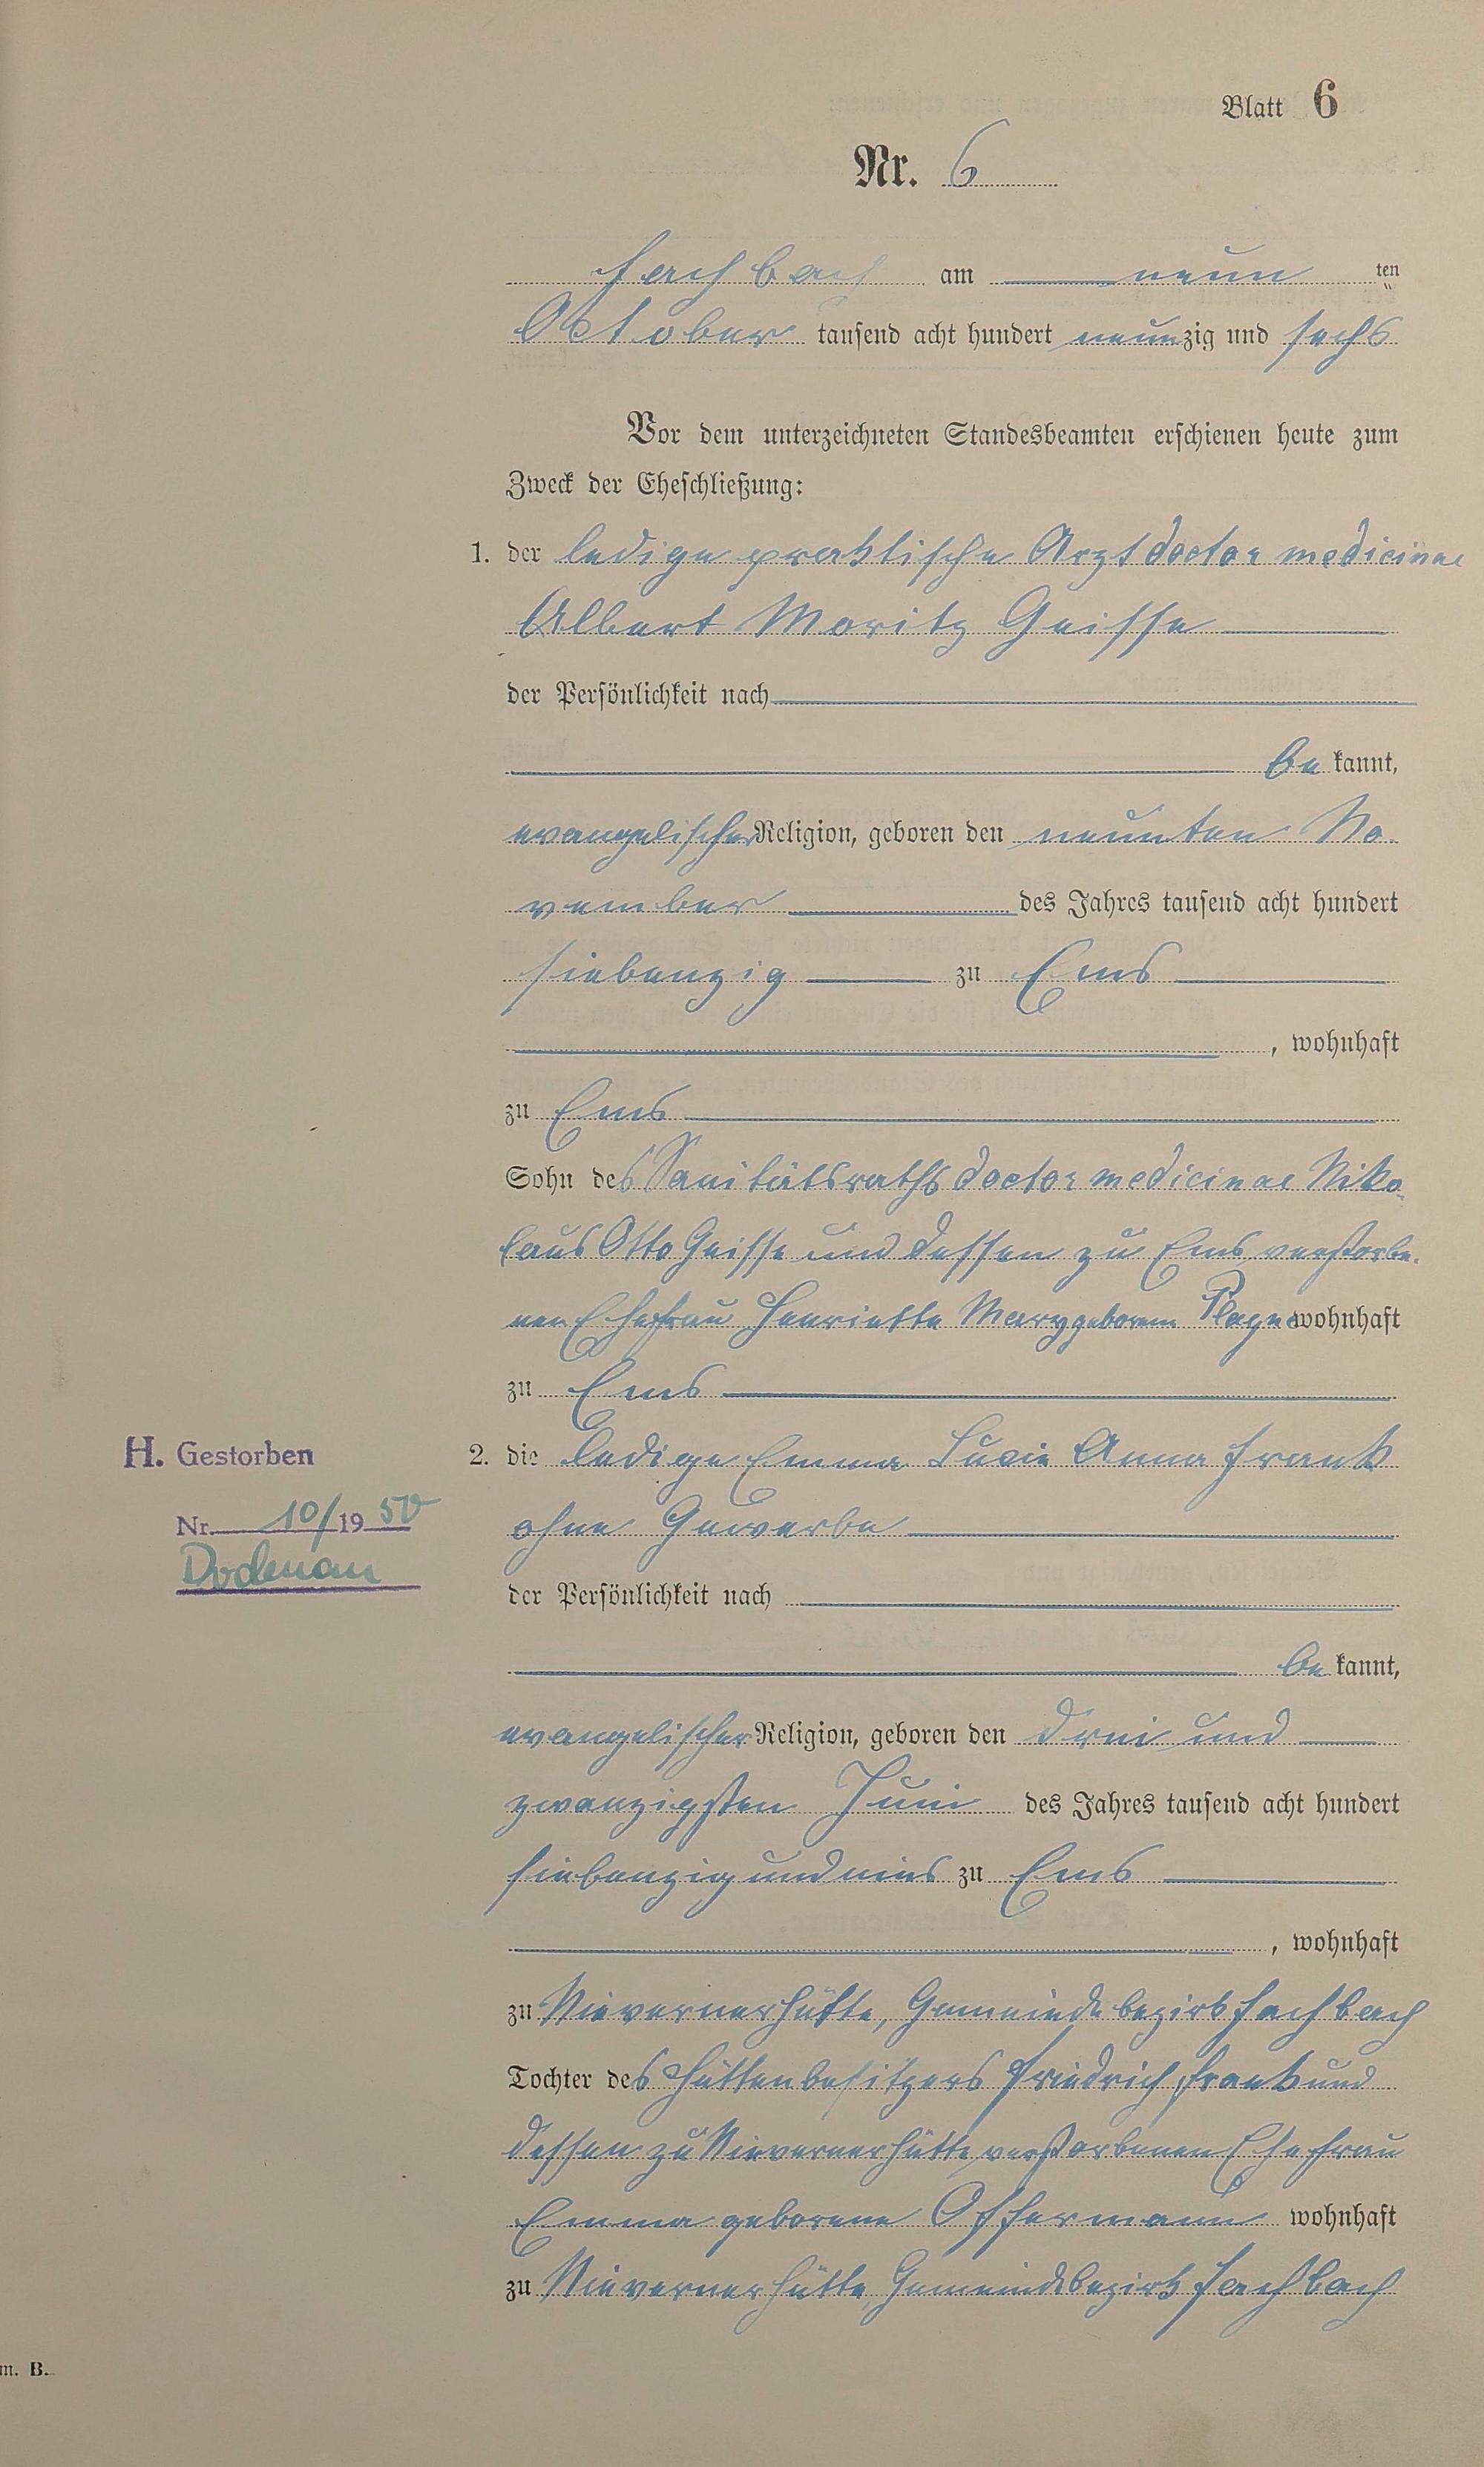 Blatt 6
Nr. 6
Fachbach am neun ten
October tausend acht hundert neunzig und sechs
Vor dem unterzeichneten Standesbeamten erschienen heute zum
Zweck der Eheschließung:
1. der ledige praktische Arzt doctor medicinae
Albert Moritz Geisse
der Persönlichkeit nach
be kannt,
evangelischer Religion, geboren den neunten No-
vember des Jahres tausend acht hundert
siebenzig zu Ems
, wohnhaft
zu Ems
Sohn des Sanitätsraths doctor medicinae Niko-
laus Otto Geisse und dessen zu Ems verstorbe-
nen Ehefrau Henriette Mary geborene wohnhaft
zu Ems
H. Gestorben
Nr. 10/1950
Dodenau
2. die ledige Emma Lucie Anna Frank
ohne Gewerbe
der Persönlichkeit nach
be kannt,
evangelischer Religion, geboren den drei und
zwanzigsten Juni des Jahres tausend acht hundert
siebenzig und eins zu Ems
, wohnhaft
zu Nievernerhütte, Gemeindebezirk Fachbach
Tochter des Hüttenbesitzers Friedrich Frank und
dessen zu Nievernerhütte verstorbenen Ehefrau
Emma geborene Offermann wohnhaft
zu Nievernerhütte, Gemeindebezirk Fachbach
m. B.